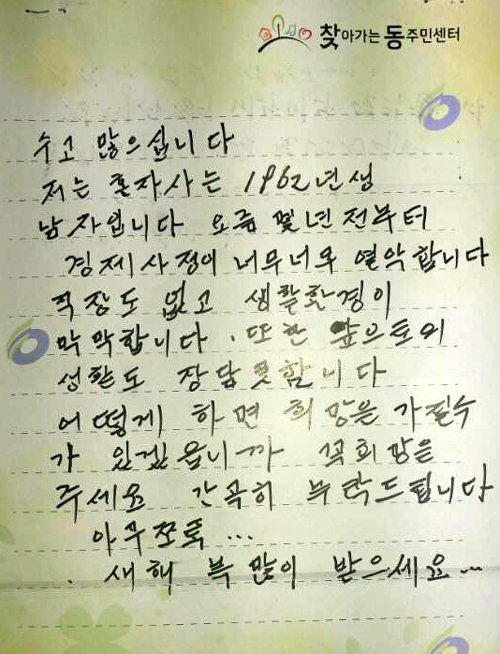 찾아가는 동주민센터
수고 많으십니다
저는 혼자사는 1962년생
남자입니다 요즘 몇년전부터
경제사정이 너무너무 열악합니다
직장도 없고 생활환경이
막막합니다. 또한 앞으로의
생활도 장담못합니다
어떻게 하면 희망을 가질수
가 있겠읍니까 꼭희망을
주세요 간곡히 부탁드립니다
아무쪼록...
새해 복 많이 받으세요...